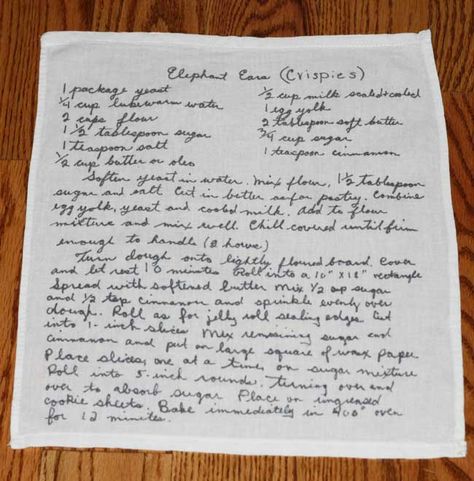 Elephant Ears (Crispies)
1 package yeast
1/4 cup lukewarm water
2 cups flour
1 1/2 tablespoon sugar
1 teaspoon salt
1/2 cup butter or oleo
1/2 cup milk scaled+cooled
1 egg yolk
2 tablespoon soft butter
3/4 cup sugar
1 teaspoon cinnamon
Soften yeast in water. Mix flour, 1 1/2 tablespoon
sugar and salt. Cut in butter as for pastry. Combine
egg yolk, yeast and cooled milk. Add to flour
mixture and mix well. Chill covered until firm
enough to handle (2 hours)
Turn dough onto lightly floured board. Cover
and let rest 10 minutes Roll into a 10" x 18" rectangle
Spread with softened butter Mix 1/2 cup sugar
and 1/2 tsp cinnamon and sprinkle evenly over
dough. Roll as for jelly roll sealing edges. Cut
into 1-inch slices Mix remaining sugar and
cinnamon and put on large square of wax paper
Place slices, one at a time, on sugar mixture
Roll into 5-inch rounds. turning over and
over to absorb sugar Place on ungreased
cookie sheets. Bake immediately in 400° oven
for 12 minutes.